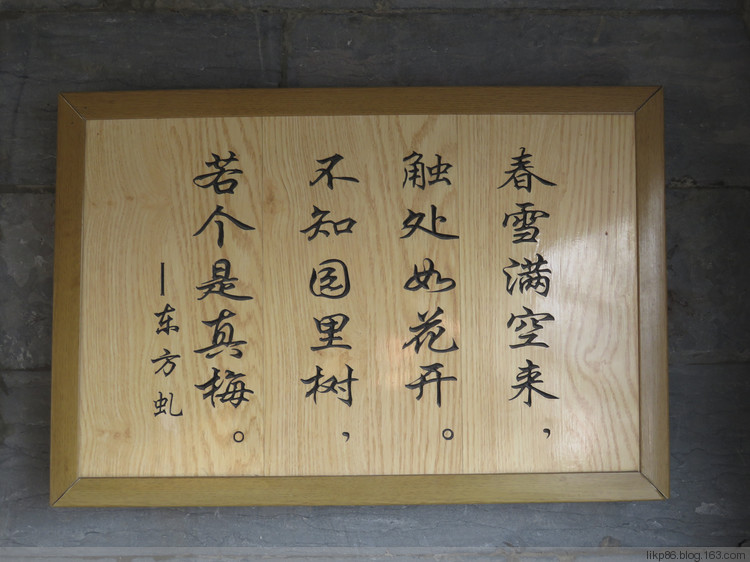 春雪满空来，
触处如花开。
不知园里树，
若个是真梅。
—东方虬
likp86.blog.163.com